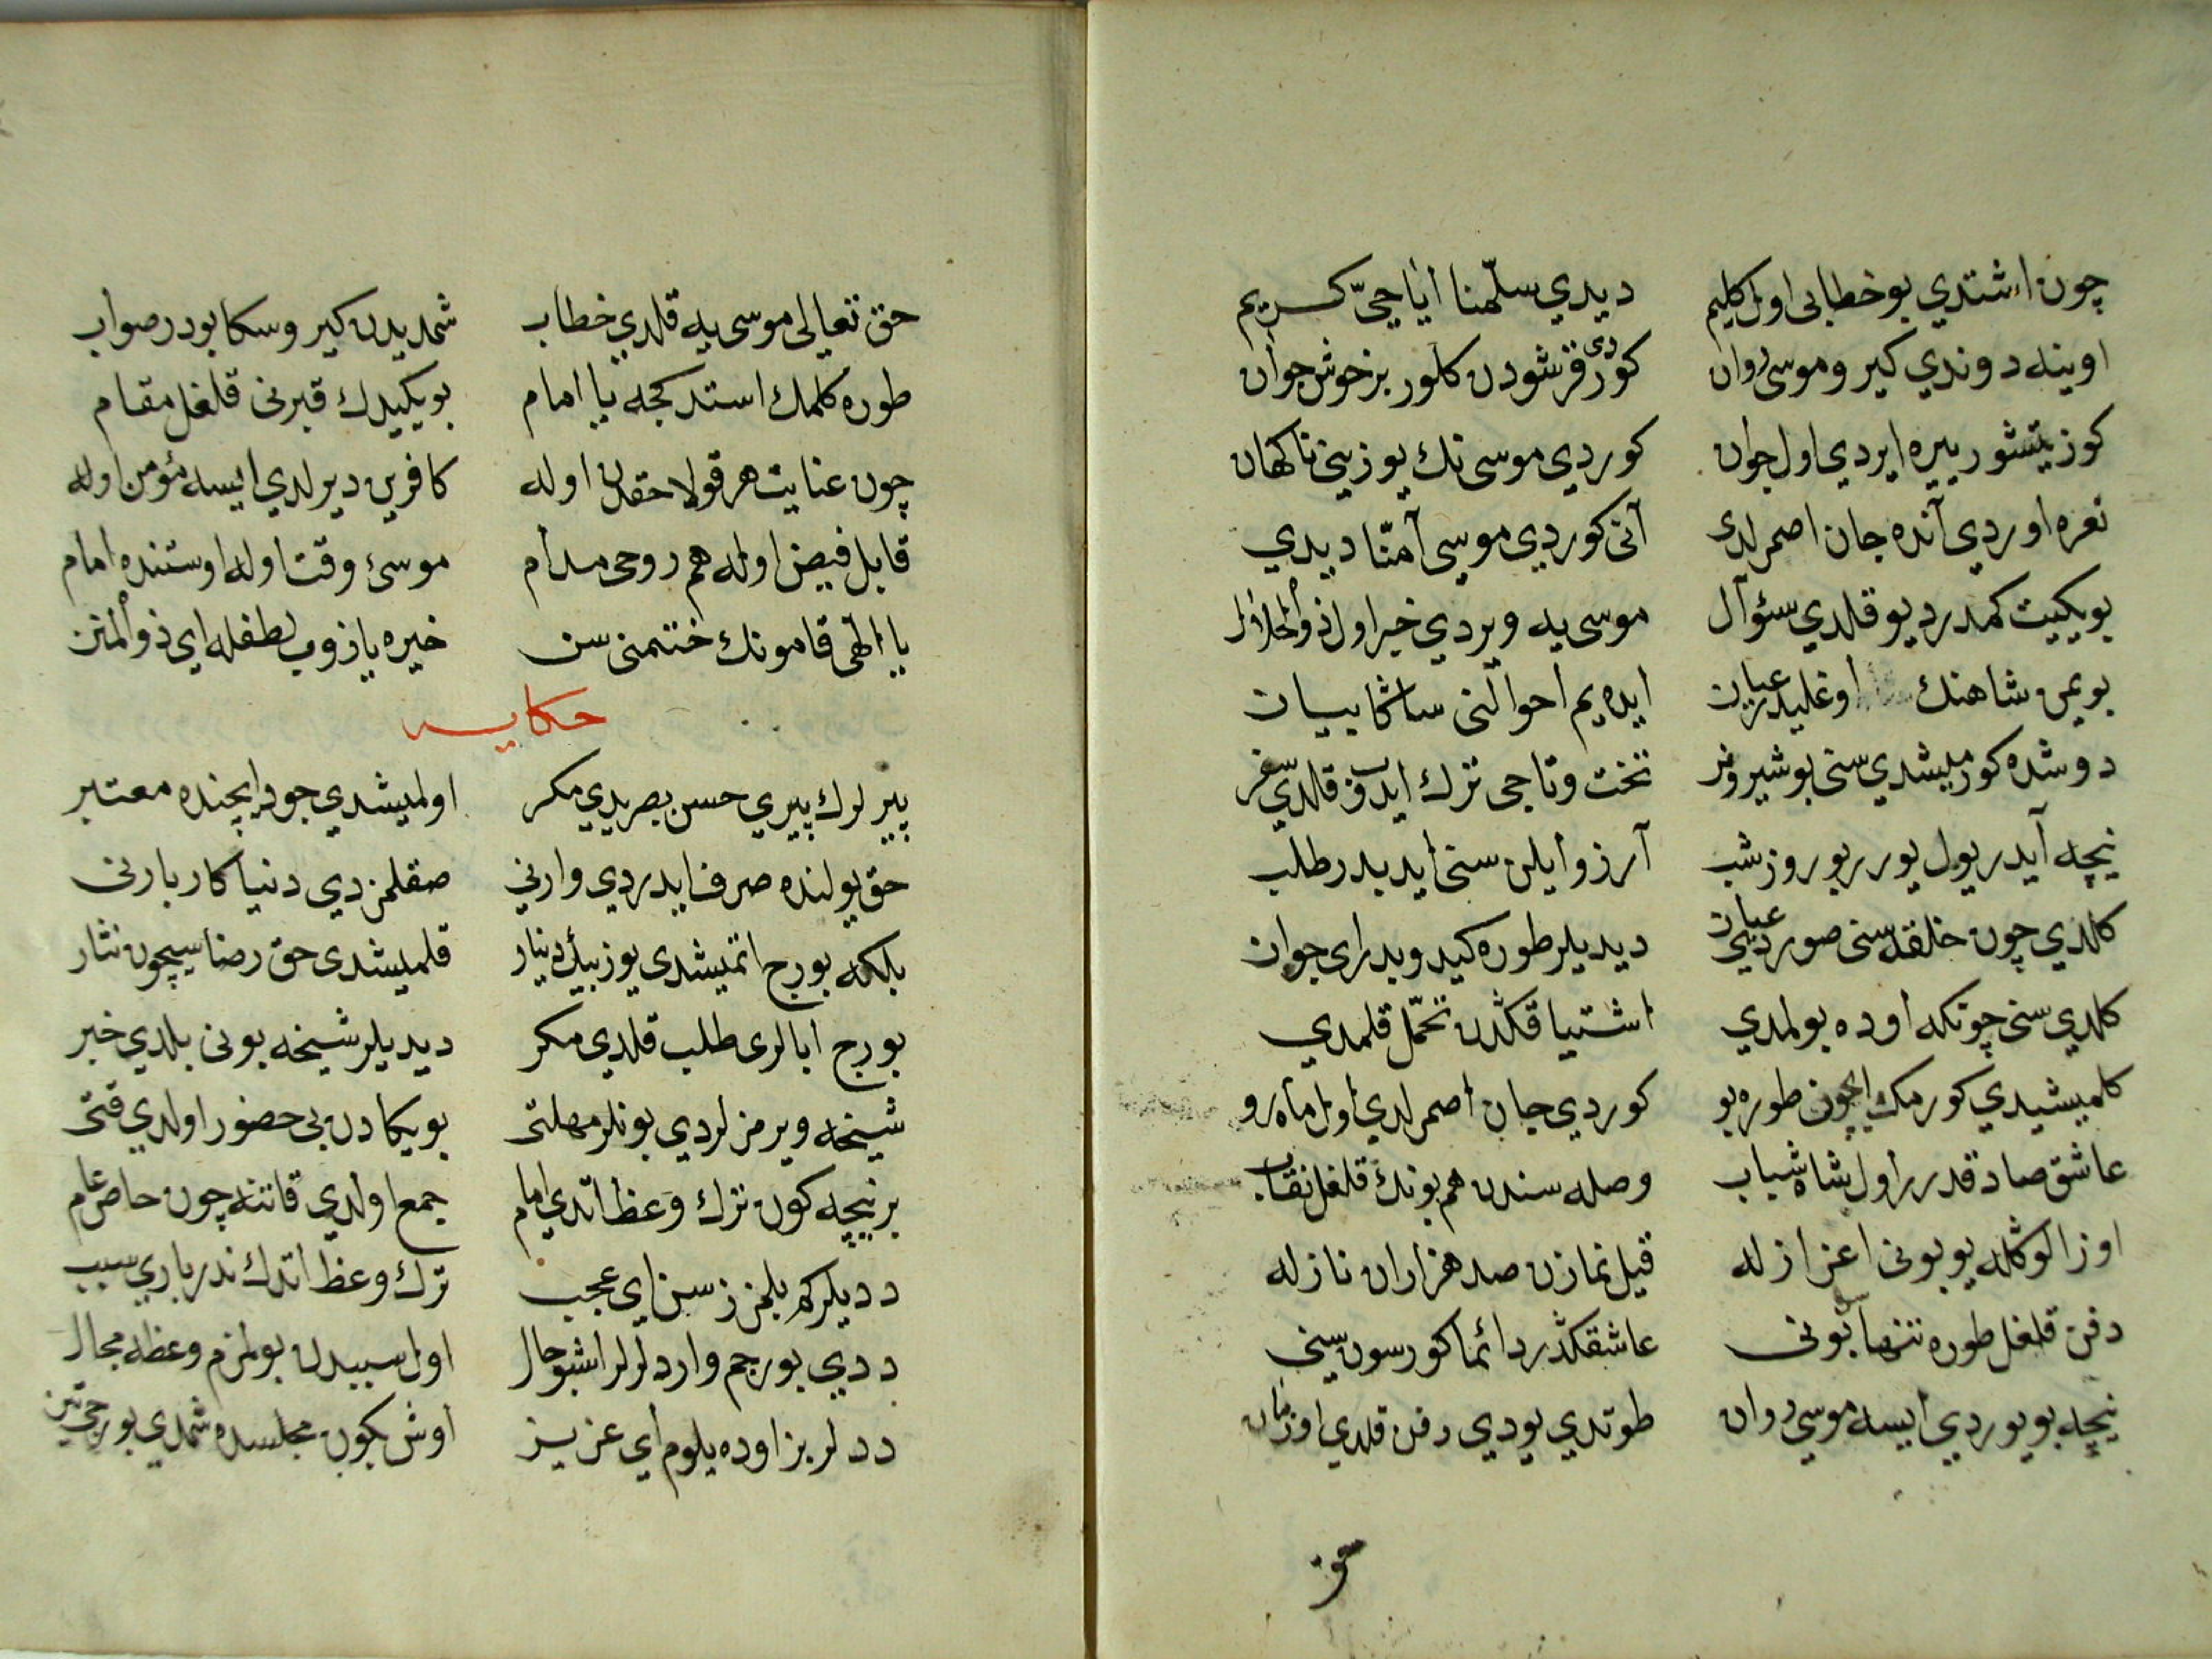 چون اشتدي بو خطابى اول كليم ديدي سلّمنا ايا حىّ كريم
اوينه دوندي كيرو موسى روان كوردى قرشودن كلور بر خوش جوان
كوز يتشور ييره ايردي اول جوان كوردي موسى نك يوزيني ناكهان
نعره اوردي آنده جان اصمرلدى آنى كوردي موسى آمنّا ديدي
بو يكيت كمدر ديو قلدي سئوآل موسى يه ويردي خبر اول ذو الجلال
بو يمن شاهنك اوغليدر عيان ايده يم احوالنى ساكا بيان
دوشده كورمليشدي سنى بو شير نر تخت و تاجى ترك ايدوب قلدي سفر
نيچه آيدر يول يورر بو روز شب آرزو ايلن سنى ايديدر طلب
كلدي چون خلقدن سنى صوردي عيان ديديلر طوره كيدوبدر اى جوان
كلدي سنى چونكه اوده بولمدي اشتياقكدن تحمّل قلمدي
كلميشيدي كورمك ايچون طوره بو كوردي جان اصمرلدي اول ماه رو
عاشق صادقدر اول شاه شباب وصله سندن هم بونك قلغل نقاب
اوز الوكله يو بونى اعزاز له قيل نمازن صد هزاران نازله
دفن قلغل طوره تنها بونى عاشقكدر دائما كورسون سنى
نيچه بويوردي ايسه موسى روان طوتدي يودي دفن قلدي اول زمان
حق
حق تعالى موسى يه قلدي خطاب شمديدن كيرو سكا بودر صواب
طوره كلمك استدكجه يا امام بو يكيدك قبرنى قلغل مقام
چون عنايت هر قولا حقدن اوله كافرين ديرلدي ايسه مؤمن اوله
قابل فيض اوله هم روحى مدام موسئ وقت اوله اوستنده امام
يا الٓهى قامونك ختمنى سن خيره يازوب لطفله اي ذو المنن
حكايه
پيرلرك پيري حسن بصريدي مكر اولمليشدي جود ايچنده معتبر
حق يولنده صرف ايدردي وارني صقلمزدي دنيا كاربارنى
بلكه بورج اتمشدى يوز بيك دينار قلمليشدى حق رضاسيچون نثار
بورج ابالرى طلب قلدي مكر ديديلر شيخه بونى بلدي خبر
شيخه ويرمزلردي بونلر مهلتى بو يكادن بى حضور اولدي قتى
بر نيچه كون ترك وعظ اتدي امام جمع اولدي قاتنه چون خاص عام
دديلر كه بلمزز سن اي عجب ترك وعظ اتدك ندر باري سبب
ددي بورجم واردرلر اشبو حال اول سببدن بولمزم وعظه مجال
ددلر بز اوده يلوم اي عزيز اوش بكون مجلسده شمدي بورجى تيز